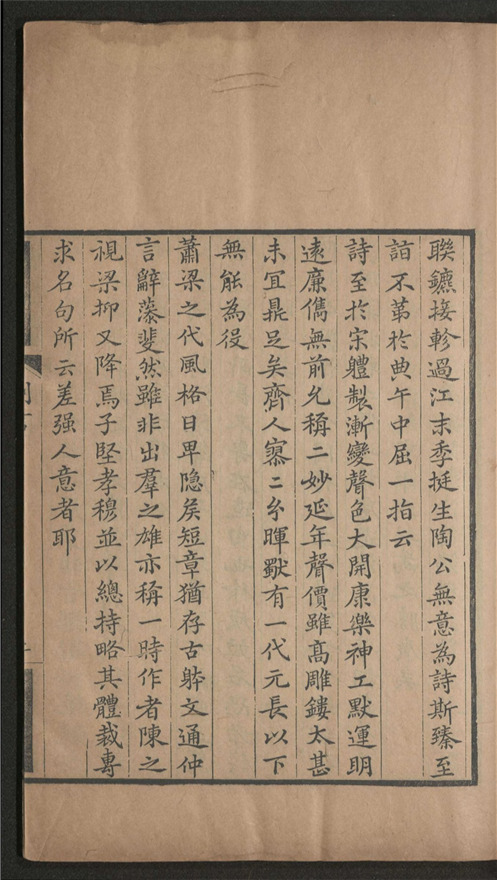 聯鑣接軫過江末季挺生陶公無意為詩斯臻至
詣不第於典午中屈一指云
詩至於宋軆製漸變聲色大開康樂神工默運明
遠廉儁無前允稱二妙延年聲價雖高雕鏤太甚
未宜鼎足矣齊人寥寥玄暉獨有一代元長以下
無能為役
蕭梁之代風格日卑隱矦短章猶存古躰文通仲
言辭藻斐然雖非出羣之雄亦稱一時作者陳之
視梁抑又降焉子堅孝穆並以總持略其體裁專
求名句所云差强人意者耶